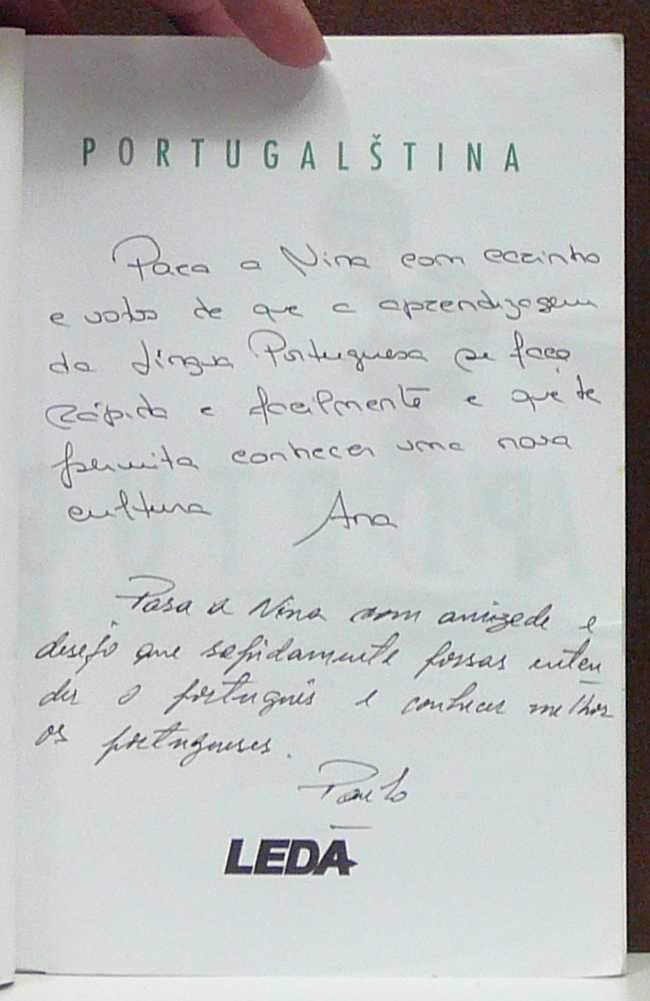 PORTUGALŠTINA
Para a Nina com carinho
e votos de que a aprendizagem
da Língua Portuguesa se faça
rápida e facilmente e que te
permita conhecer uma nova
cultura Ana
Para a Nina com amizade e
desejo que rapidamente possas enten
der o português e conhecer melhor
os portugueses.
Paulo
LEDA